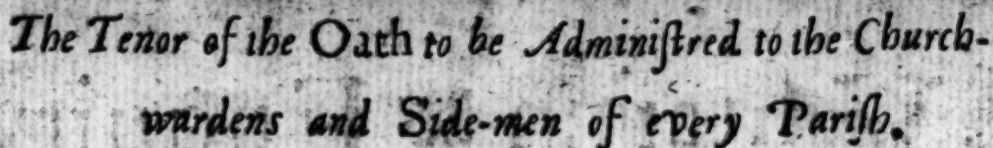 The Tenor of the Oath to be Adminiſtred to the Church-
wardens and Side-men of every Pariſh.